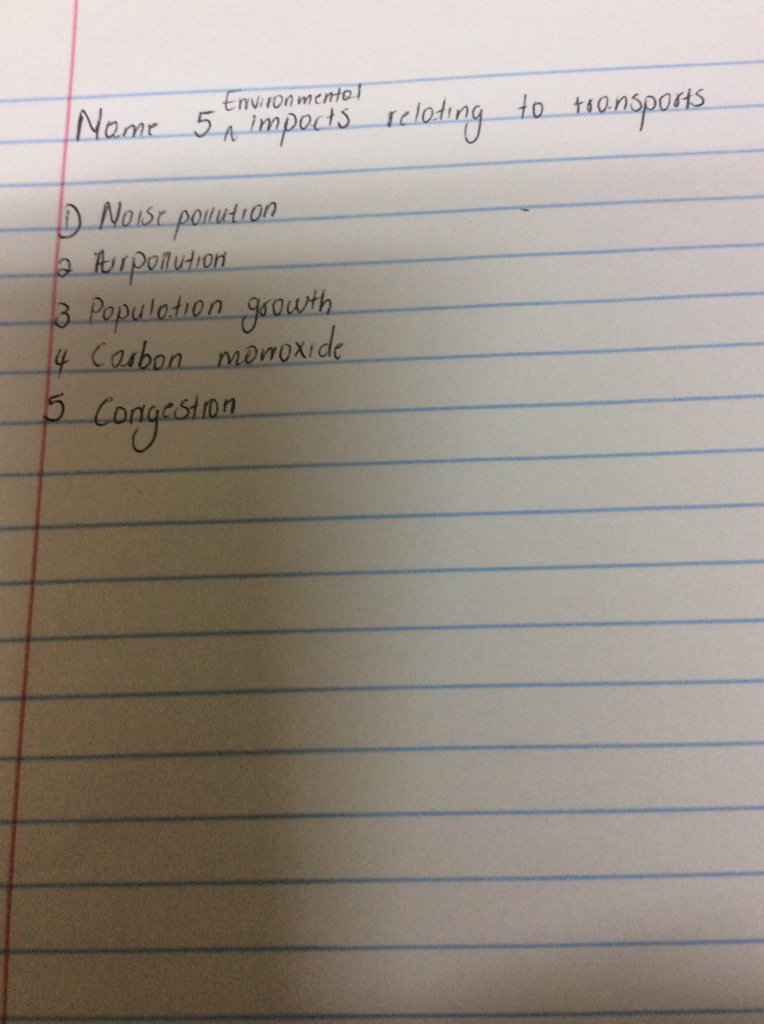 Name 5 ^ Environmental impacts relating to transports
① Noise pollution
2 Air pollution
3 Population growth
4 Carbon monoxide
5 Congestion